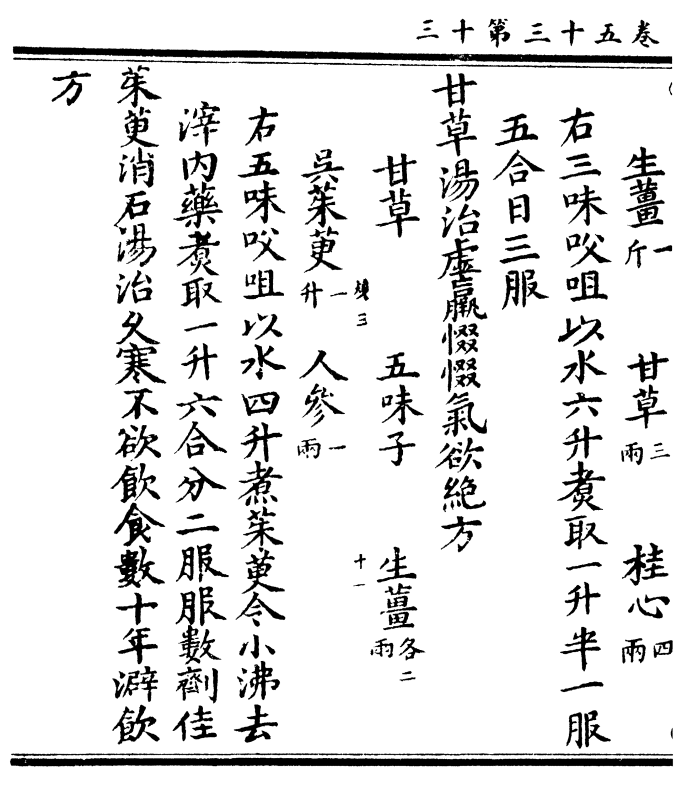 卷五十三第十三
生薑一斤 甘草三兩 桂心四兩
右三味㕮咀以水六升煑取一升半一服
五合日三服
甘草湯治虛羸惙惙氣欲絶方
甘草 五味子 生薑各二兩
十一
吳茱萸一升 人參一兩
右五味㕮咀以水四升煮茱萸令小沸去
滓内藥煑取一升六合分二服服數劑佳
茱萸消石湯治久寒不欲飲食數十年澼飲
方